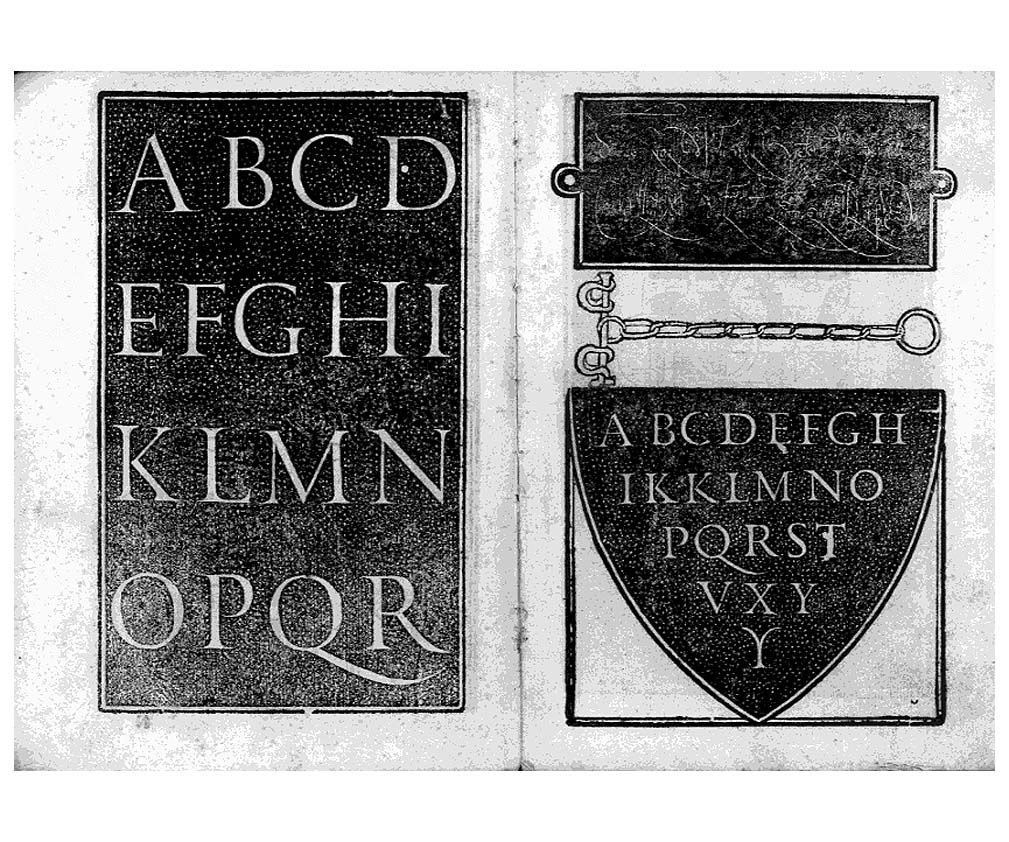 A B C D
E F G H I
K L M N
O P Q R
A B C D E F F G H
I K K L M N O
P Q R S T
V X Y
Y